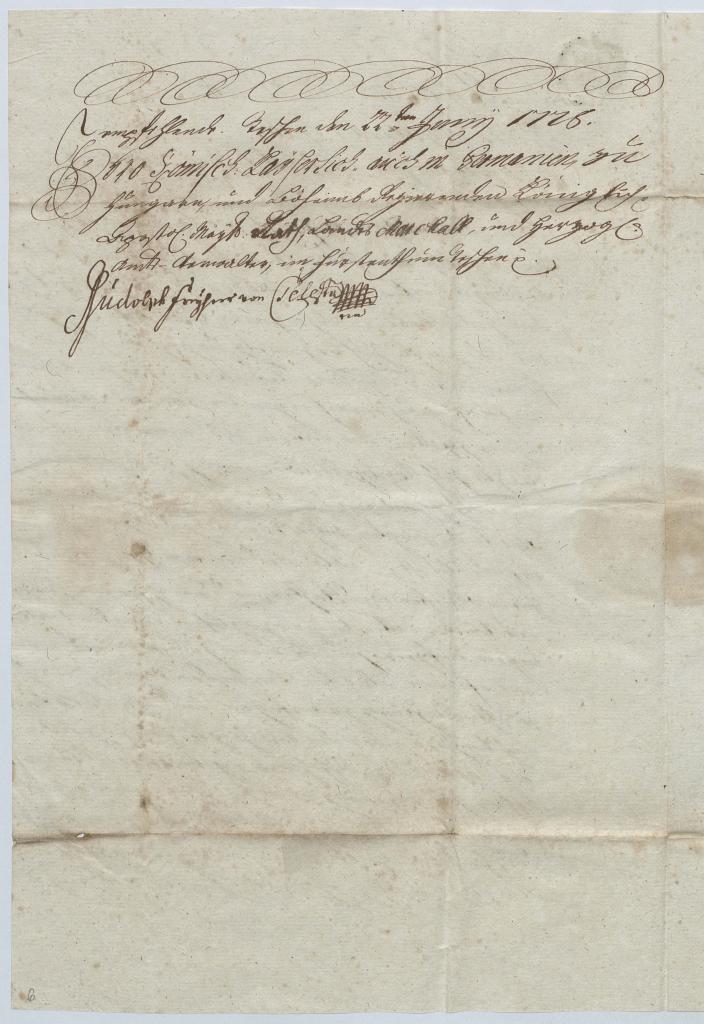 empfehlende. Teschen den 22ten Juny 1776.
Der Römisch. Kayserlich. auch in Germanien, zu
Hungarn, und Böheimb Regierenden Königlich.
Apostol. Mayt. Rath, Landes Marschall, und Herzogl.
Amts-Verwalter, im Fürstenthum Teschen
Rudolph Freyherr von
6